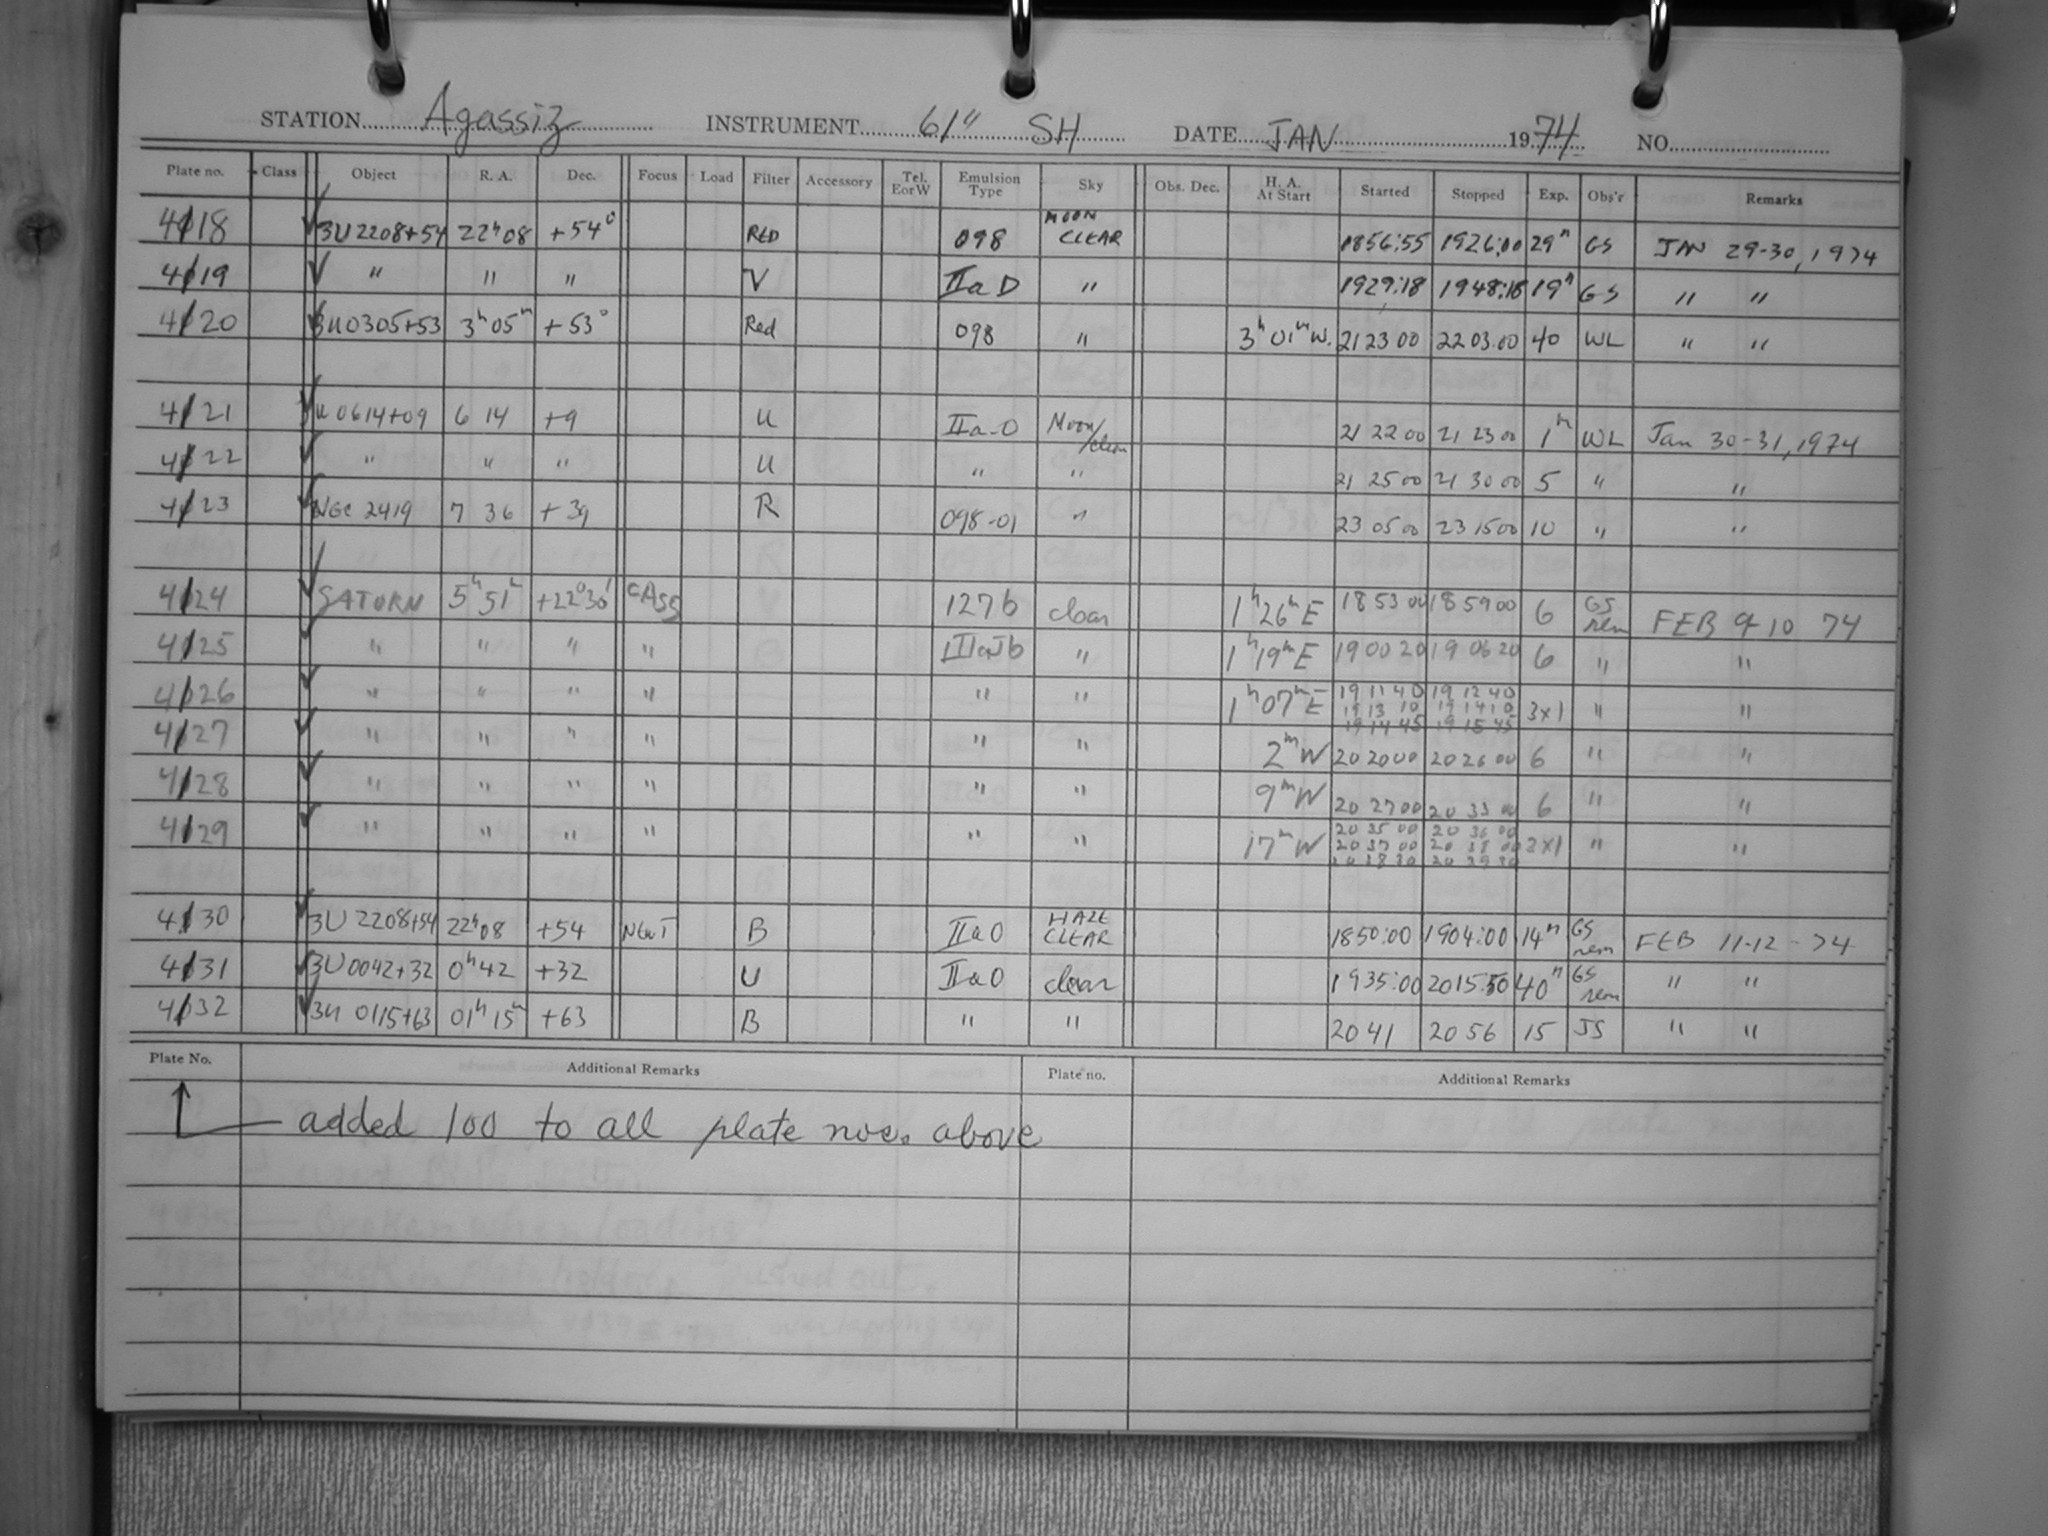 STATION Agassiz INSTRUMENT 61" SH DATE JAN 1974 NO.
Plate no. Class Object R. A. Dec. Focus Load Filter Accessory Tel. E or W Emulsion Type Sky Obs. Dec. H. A. At Start Started Stopped Exp. Obs'r Remarks
4118 3U2208+54 22h08 +54° RED 098 MOON CLEAR 1856:55 1926:00 29m GS JAN 29-30, 1974
4119 " " " V IIaD " 1929:18 1948:18 19m GS " "
4120 3U0305+53 3h05m +53° Red 098 " 3h01mW. 21 23 00 22 03 00 40 WL " "
4121 3U0614+09 6 14 +9 U IIa-O Moon/clear 21 22 00 21 23 00 1m WL Jan 30-31, 1974
4122 " " " U " " 21 25 00 21 30 00 5 " "
4123 NGC 2419 7 36 +39 R 098-01 " 23 05 00 23 15 00 10 " "
4124 SATURN 5h51m +22°30' CASS 127b clear 1h26mE 18 53 00 18 59 00 6 GS rem FEB 9-10 74
4125 " " " " IIIaJb " 1h19mE 19 00 20 19 06 20 6 " "
4126 " " " " " " 1h07mE 19 11 40 19 12 40 3x1 " "
19 13 10 19 14 10
19 14 45 19 15 45
4127 " " " " " " 2mW 20 20 00 20 26 00 6 " "
4128 " " " " " " 9mW 20 27 00 20 33 00 6 " "
4129 " " " " " " 17mW 20 35 00 20 36 00 3x1 " "
20 37 00 20 38 00
20 38 30 20 39 30
4130 3U 2208+54 22h08 +54 NEWT B IIaO HAZE CLEAR 1850:00 1904:00 14m GS rem FEB 11-12-74
4131 3U0042+32 0h42 +32 U IIaO clear 1935:00 2015:50 40m GS rem " "
4132 3U 0115+63 01h15m +63 B " " 20 41 20 56 15 JS " "
Plate No. Additional Remarks Plate no. Additional Remarks
added 100 to all plate nos. above